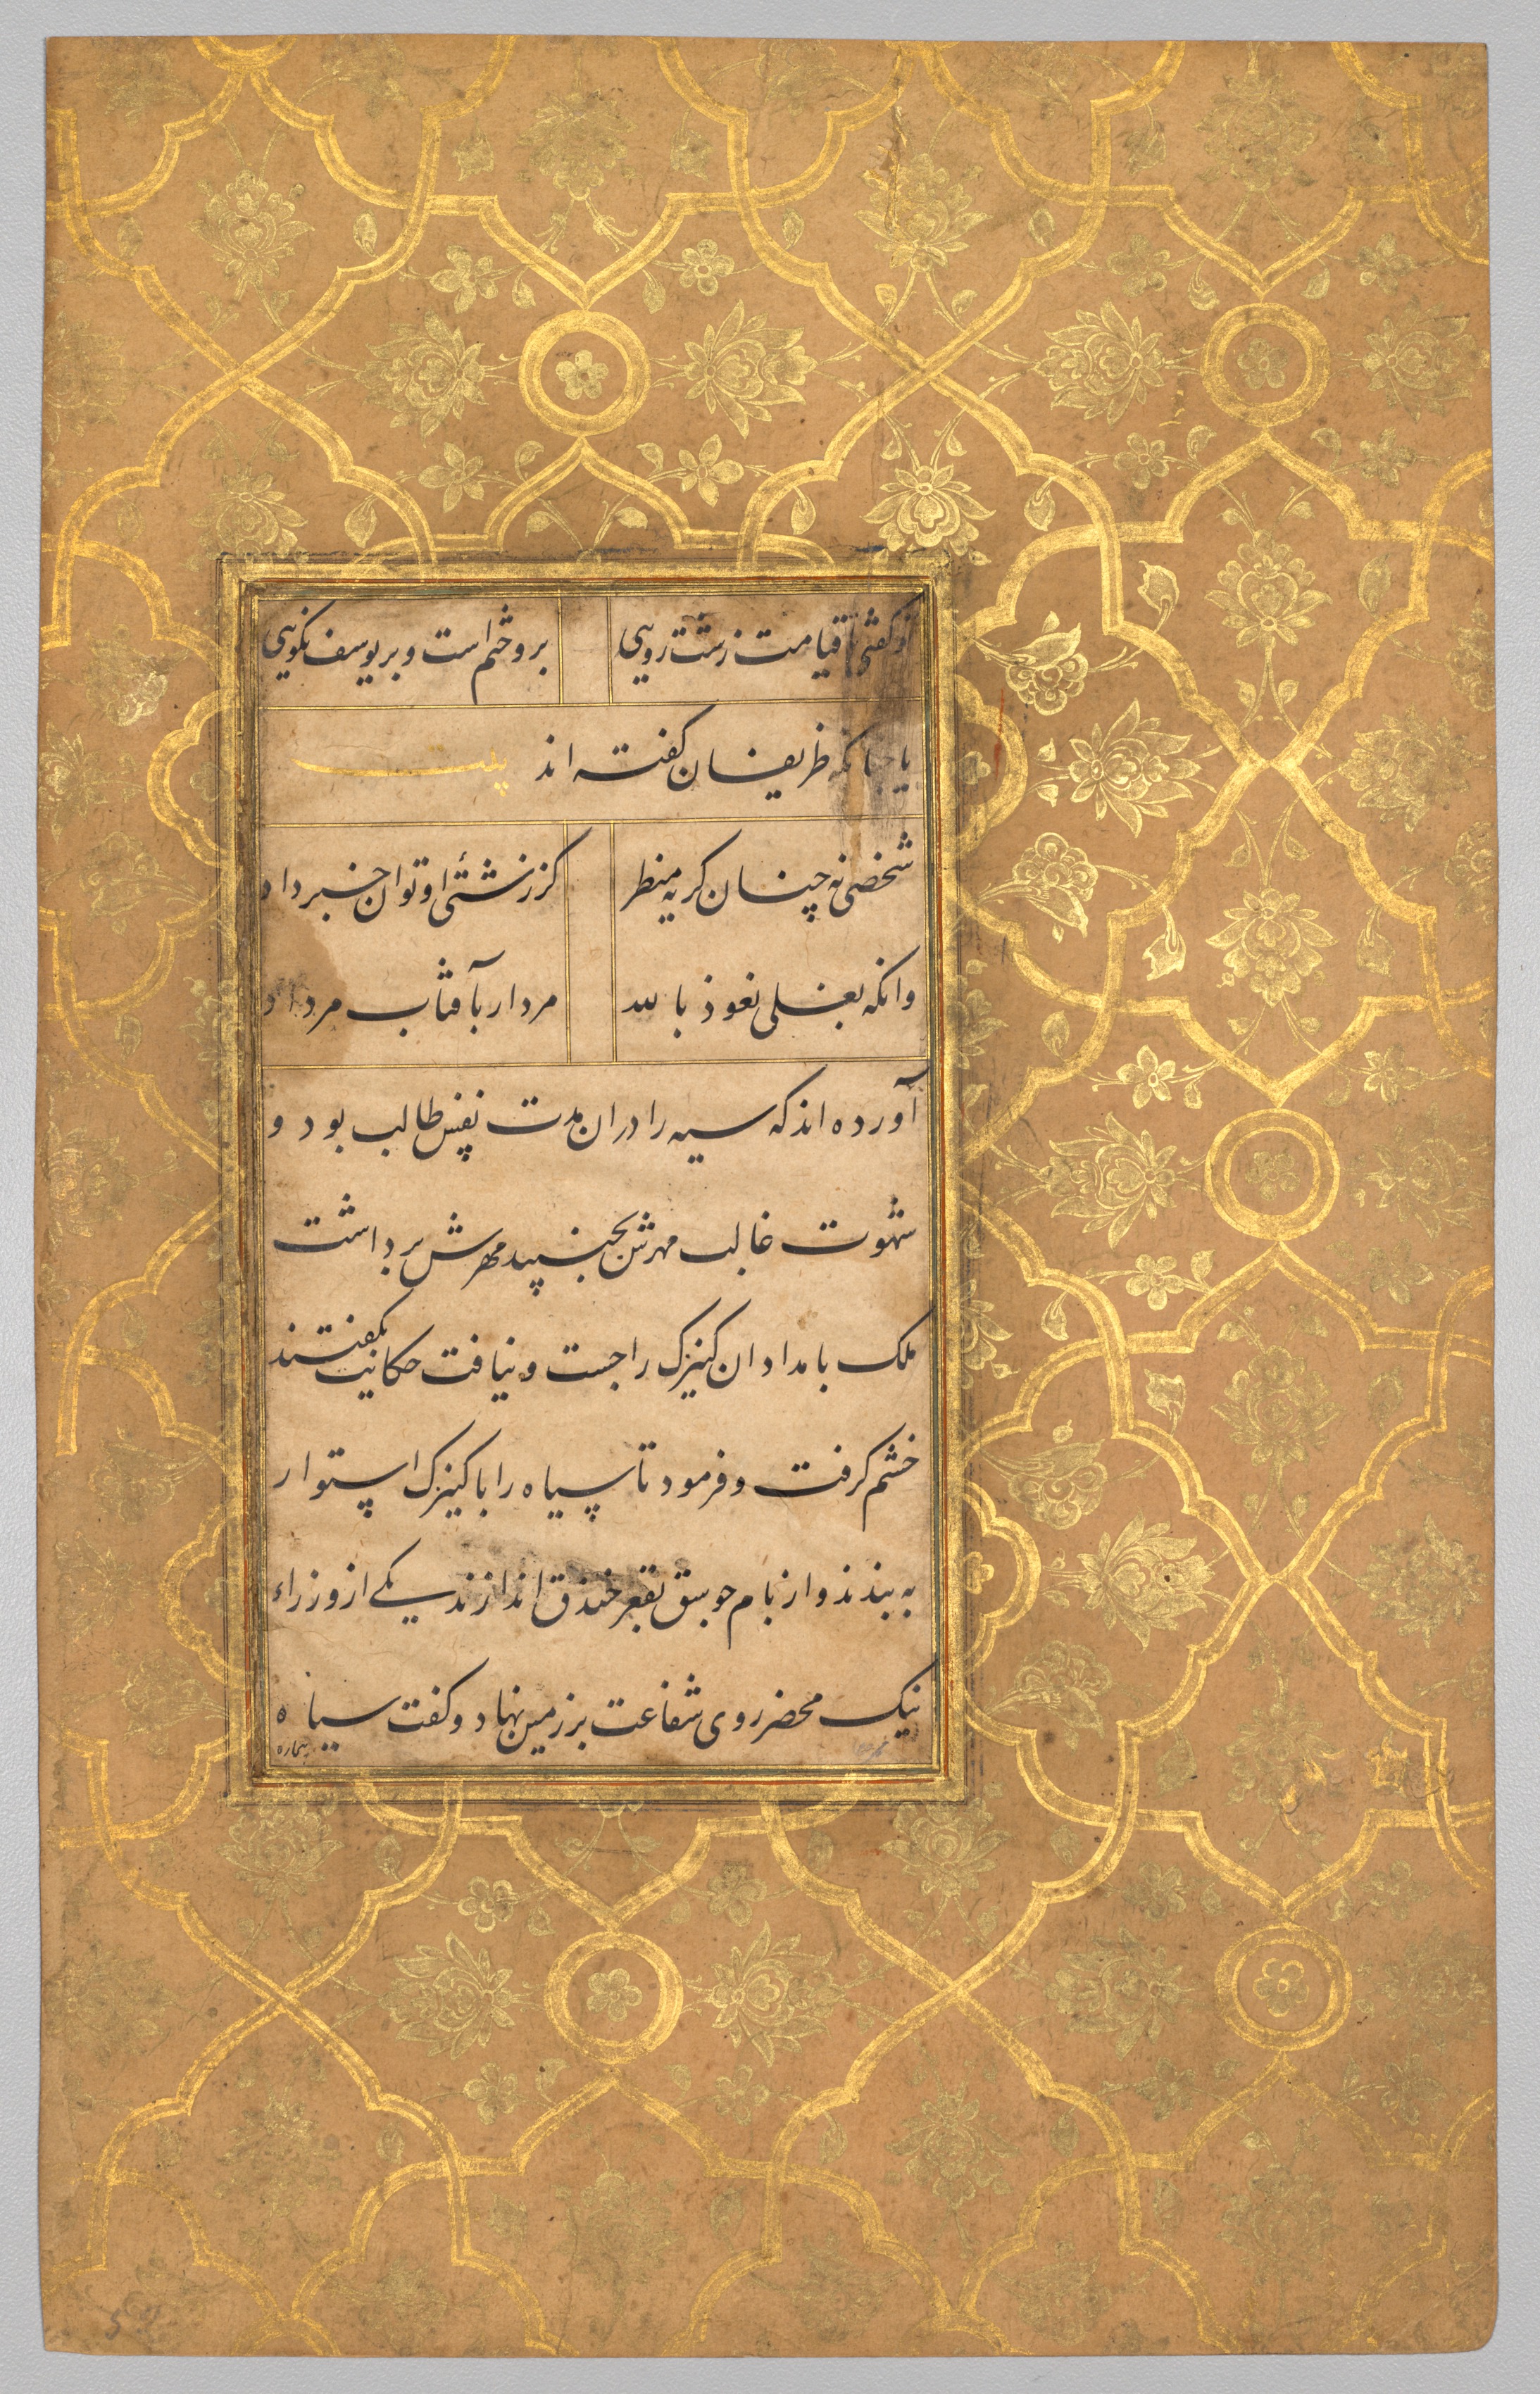 تو گفتی تا قیامت زشت رویی بروختم است و بر یوسف نکویی
یا چنانکه ظریفان گفته اند بیت
شخصی نه چنان کریه منظر کز زشتئ او توان خبر داد
وانکه بغلی نعوذ بالله مردار بآفتاب مرداد
آورده اند که سیه را دران مدت نفس طالب بود و
شهوت غالب مهرش بجنبید مهرش برداشت
ملک بامدادان کنیزک را جست و نیافت حکایت بگفتند
خشم گرفت و فرمود تا سیاه را با کنیزک استوار
به بندند و از بام جوسق بقعر خندق اندازند یکی از وزراء
نیک محضر روی شفاعت بر زمین نهاد و گفت سیاه
بیچاره